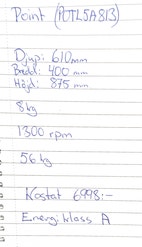 Point (POTL5A813)
Djup: 610mm
Bredd: 400 mm
Höjd: 875 mm
8kg
1300 rpm
56kg
Kostat 6998:-
Energiklass A